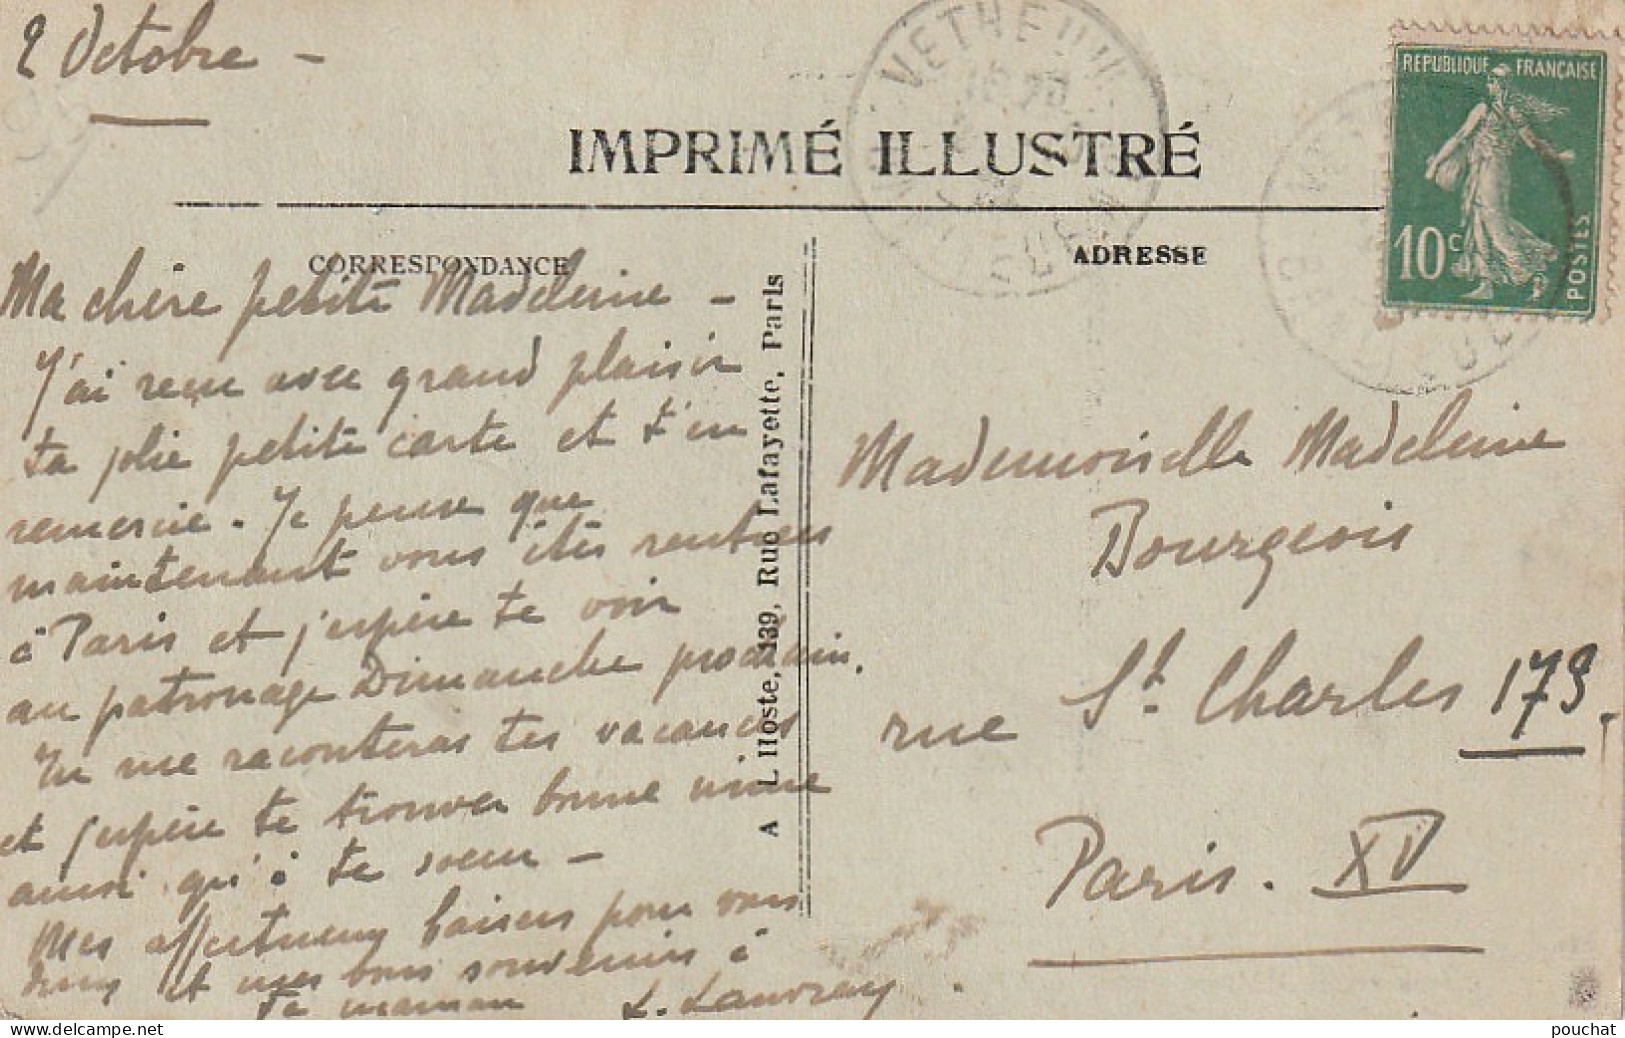 2 Octobre -
VETHEUIL
REPUBLIQUE FRANÇAISE
10c
POSTES
IMPRIMÉ ILLUSTRÉ
CORRESPONDANCE
ADRESSE
Ma chère petite Madeleine -
J'ai reçu avec grand plaisir
ta jolie petite carte et t'en
remercie. Je pense que
maintenant vous êtes rentrées
à Paris et j'espère te voir
au patronage Dimanche prochain.
Tu me raconteras tes vacances
et j'espère te trouver bonne mine
ainsi qu'à ta soeur -
Mes affectueux baisers pour vous
deux et mes bons souvenirs à
ta maman
A L'Hoste, 139, Rue Lafayette, Paris
Mademoiselle Madeleine
Bourgeois
rue St. Charles 173.
Paris. XV
pouchat